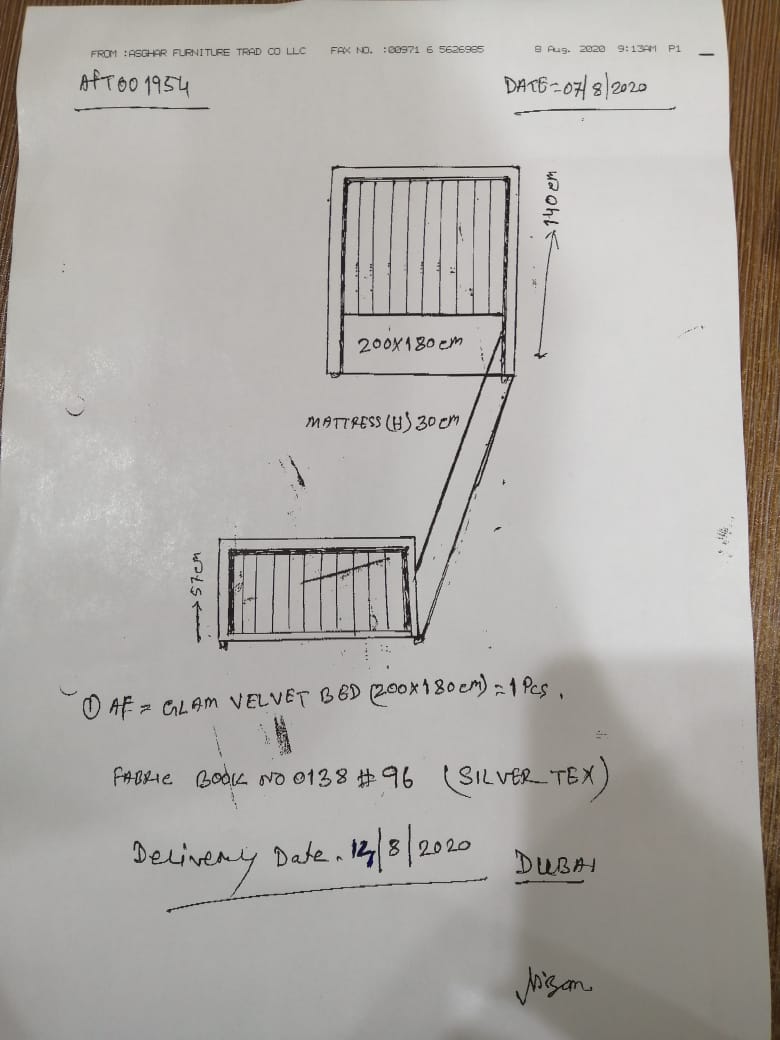 FROM :ASGHAR FURNITURE TRAD CO LLC FAX NO. :00971 6 5626985 8 Aug. 2020 9:13AM P1
AFT001954 DATE=07/8/2020
140cm
200X180cm
MATTRESS (H) 30cm
57cm
① AF = GLAM VELVET BED (200x180cm) = 1 Pcs.
FABRIC BOOK NO 0138 # 96 (SILVER TEX)
Delivery Date. /8/2020 DUBAI
Nizam